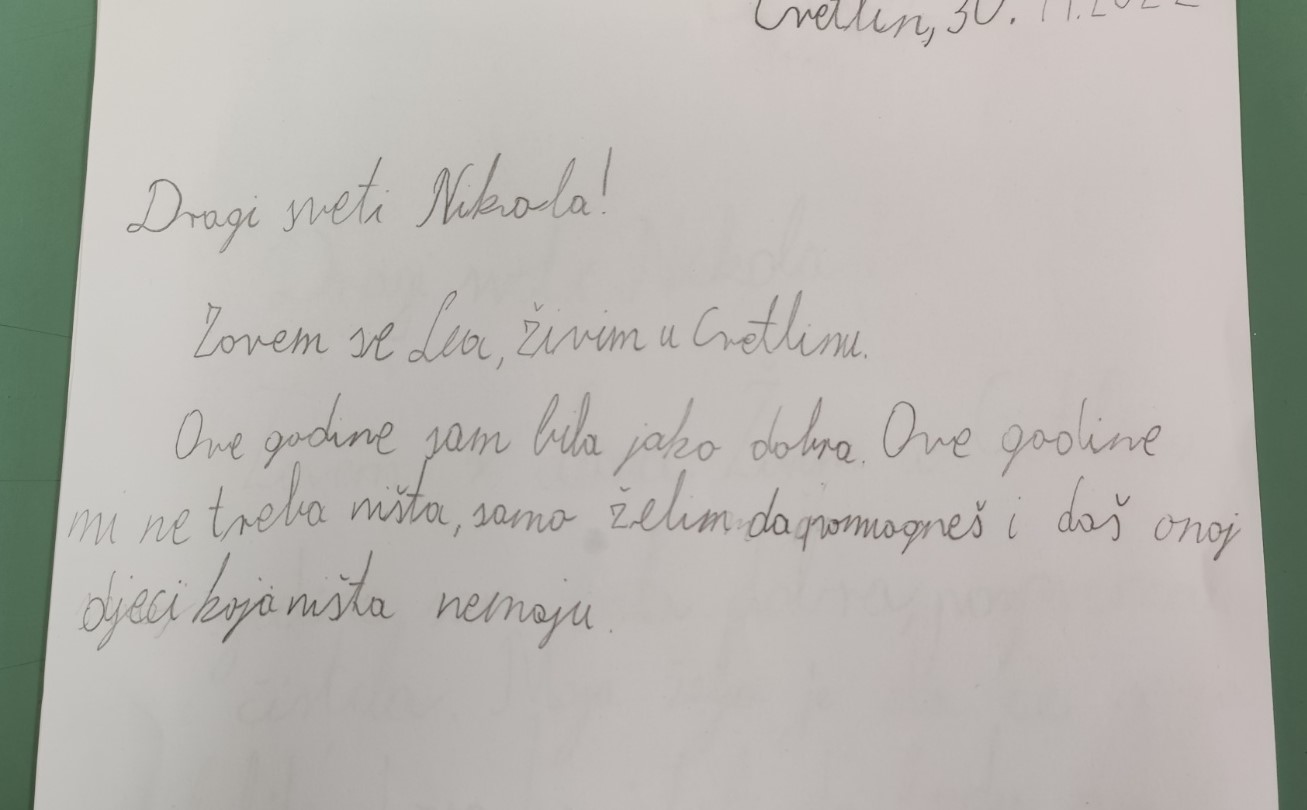 Cvetlin, 30. 11. 2022
Dragi sveti Nikola!
Zovem se Lea, živim u Cvetlinu.
Ove godine sam bila jako dobra. Ove godine
mi ne treba ništa, samo želim da pomogneš i daš onoj
djeci koja ništa nemaju.